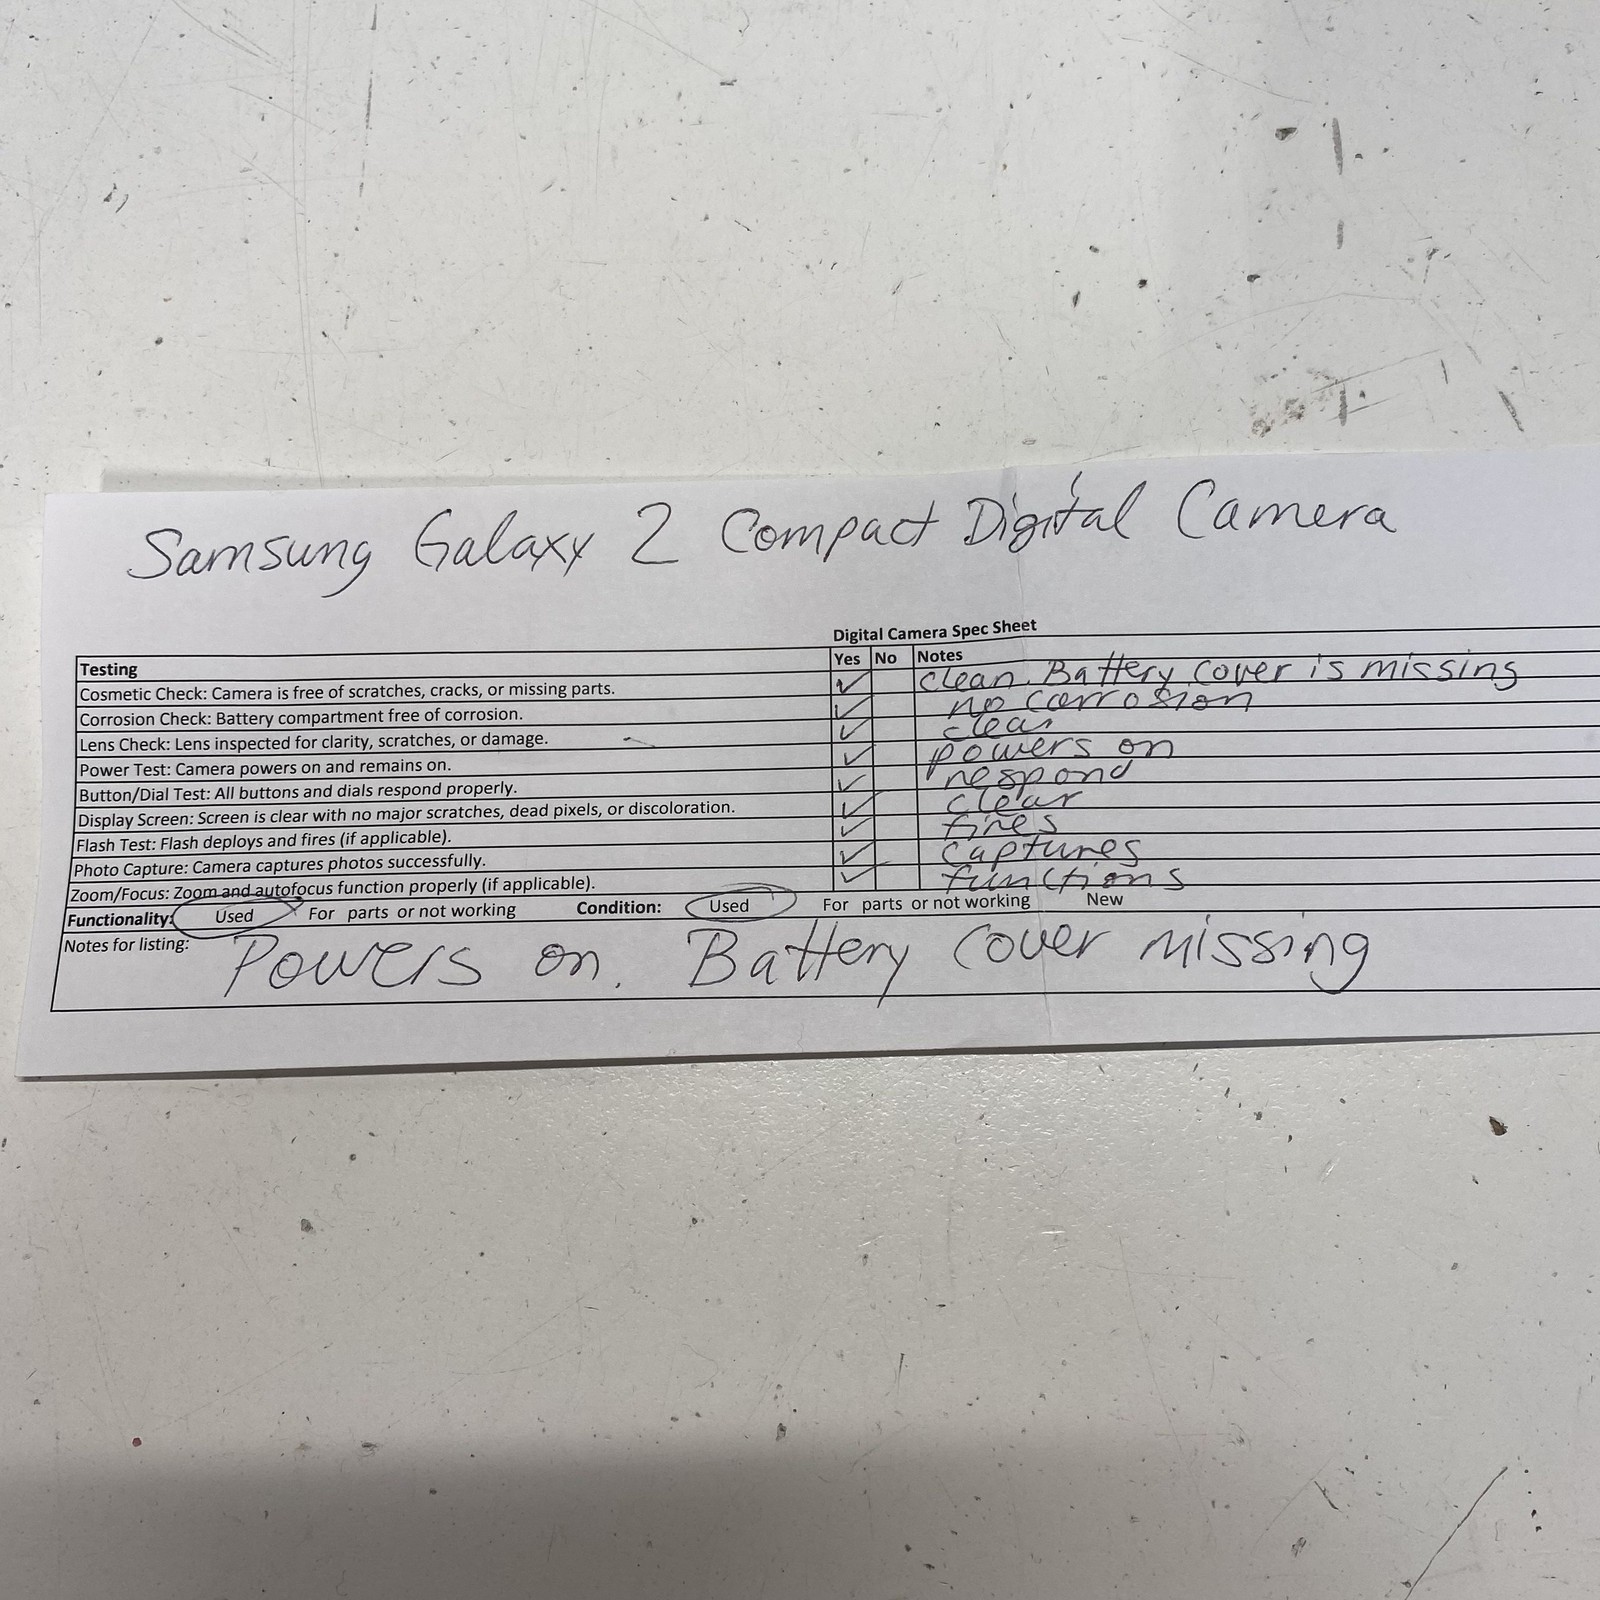 Samsung Galaxy 2 Compact Digital Camera
Digital Camera Spec Sheet
Testing Yes No Notes
Cosmetic Check: Camera is free of scratches, cracks, or missing parts. ✓ clean. Battery cover is missing
Corrosion Check: Battery compartment free of corrosion. ✓ no corrosion
Lens Check: Lens inspected for clarity, scratches, or damage. ✓ clear
Power Test: Camera powers on and remains on. ✓ powers on
Button/Dial Test: All buttons and dials respond properly. ✓ respond
Display Screen: Screen is clear with no major scratches, dead pixels, or discoloration. ✓ clear
Flash Test: Flash deploys and fires (if applicable). ✓ fires
Photo Capture: Camera captures photos successfully. ✓ captures
Zoom/Focus: Zoom and autofocus function properly (if applicable). ✓ functions
Functionality: Used For parts or not working Condition: Used For parts or not working New
Notes for listing: Powers on. Battery cover missing